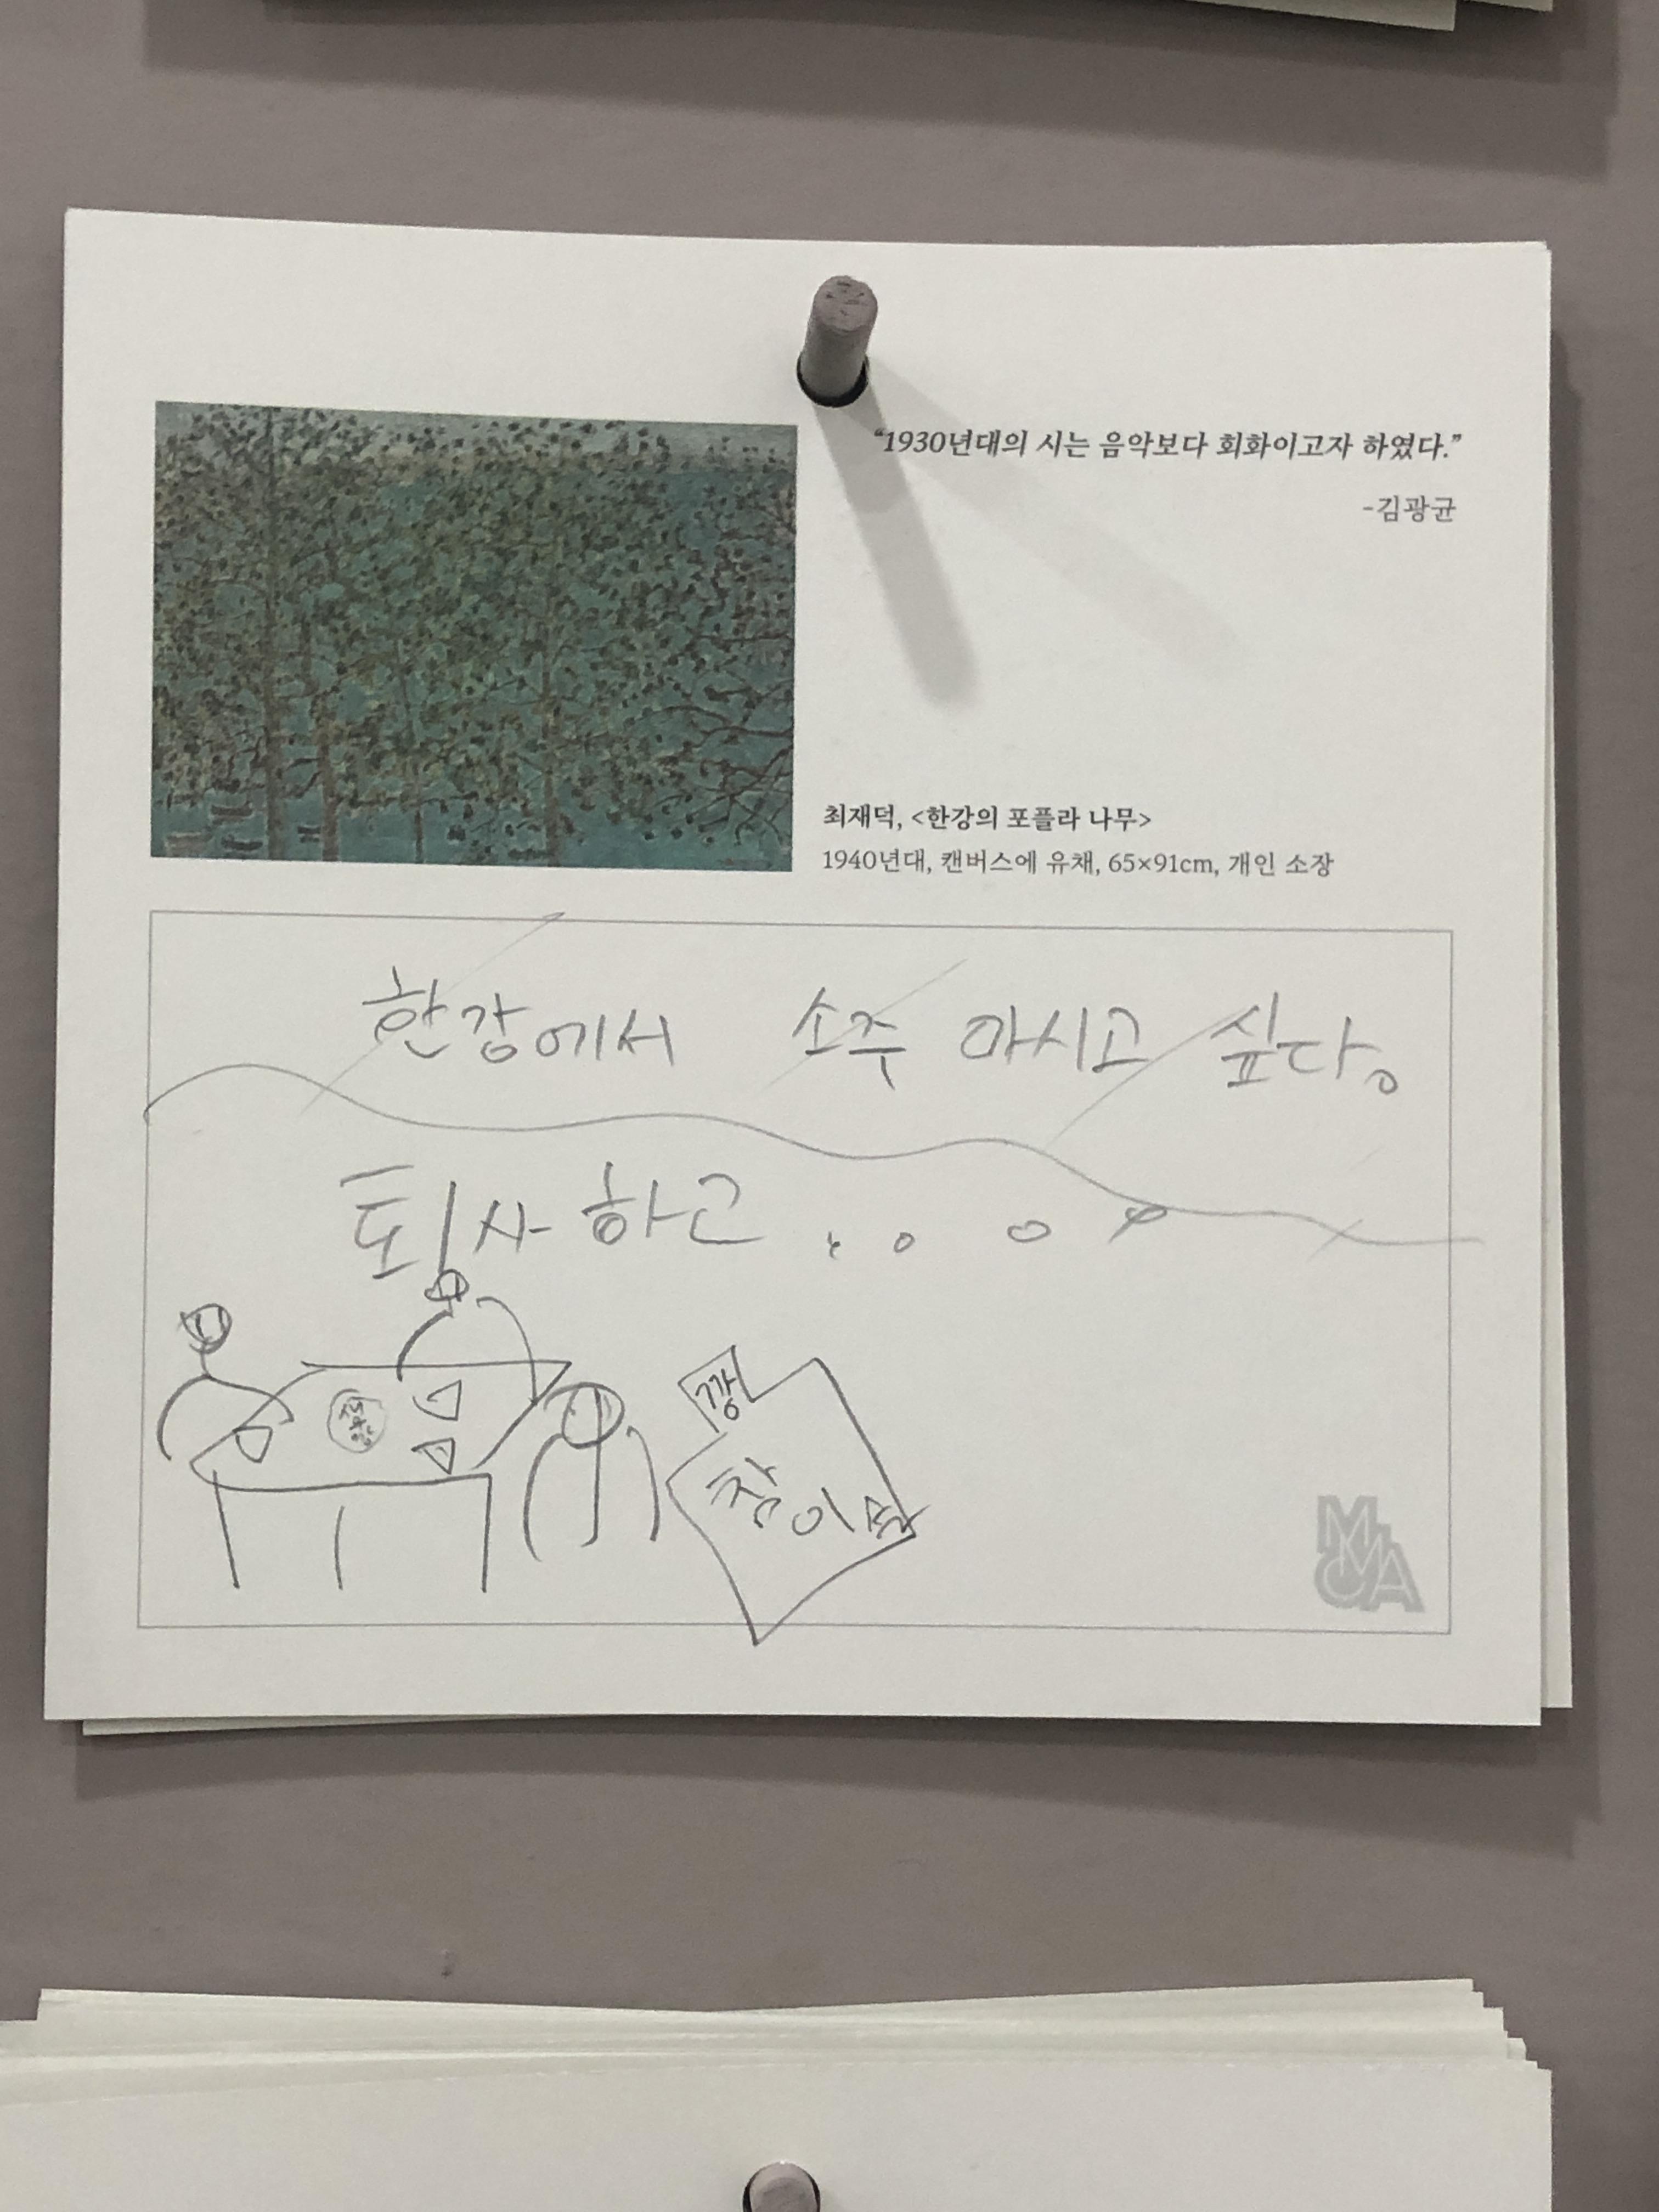 “1930년대의 시는 음악보다 회화이고자 하였다.”
-김광균
최재덕, <한강의 포플라 나무>
1940년대, 캔버스에 유채, 65×91cm, 개인 소장
한강에서 소주 마시고 싶다。
퇴사하고...
깡
참이슬
MMCA